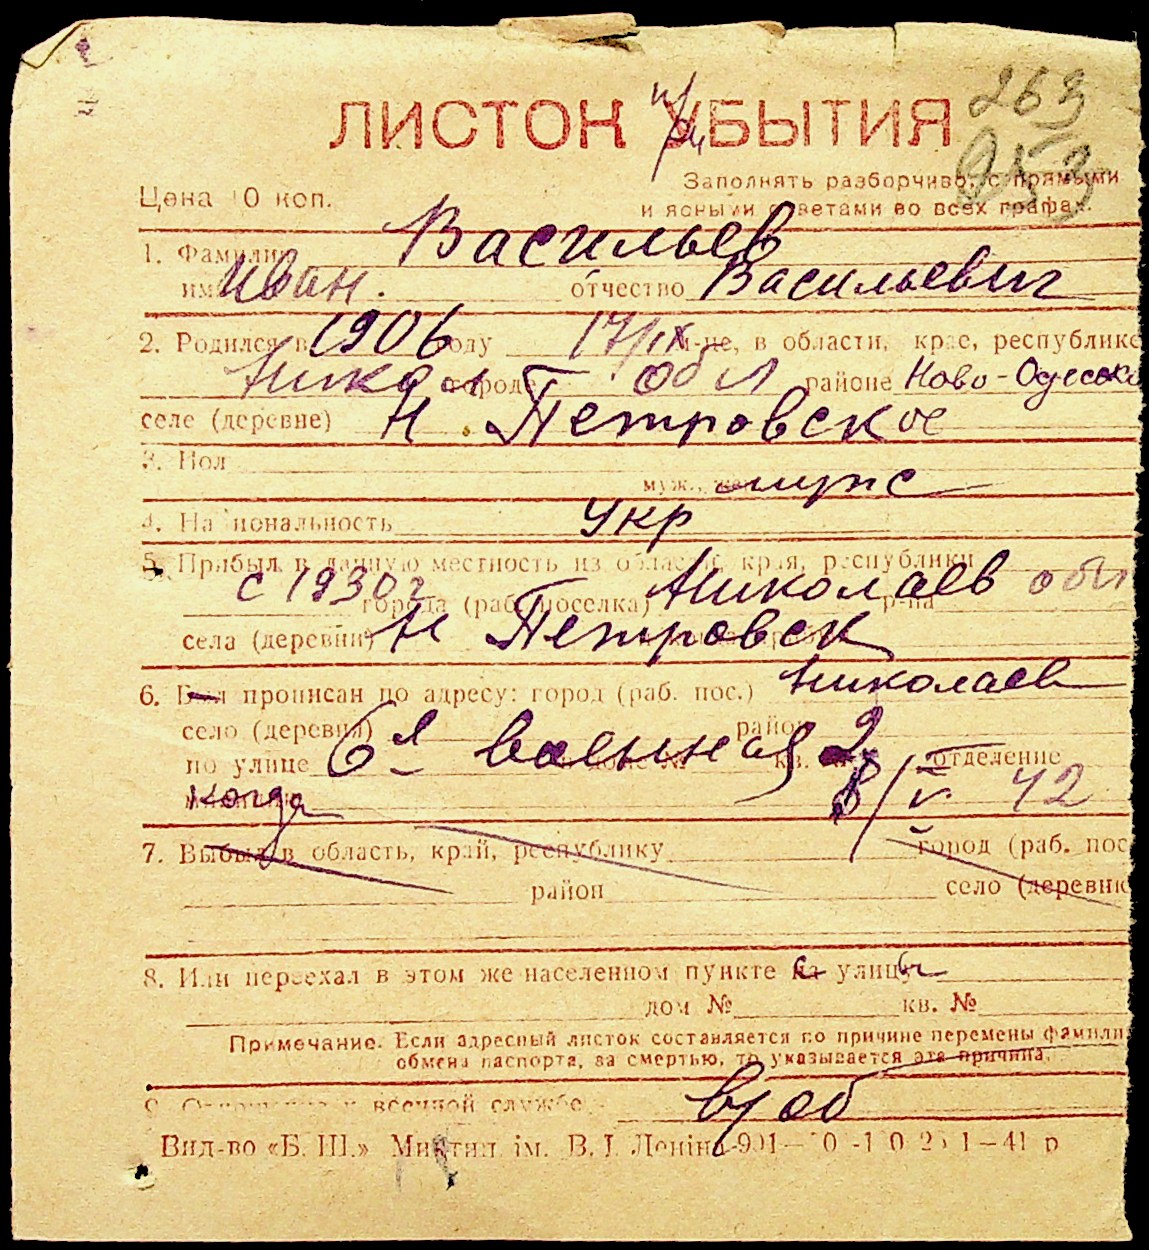 263
ЛИСТОК УБЫТИЯ
253
Заполнять разборчиво, с прямыми
Цена 10 коп.
и ясными ответами во всех графах.
1. Фамилия Васильев
имя Иван. отчество Васильевич
2. Родился в 1906 году 17/IX м-це, в области, крае, республике
Никол городе обл районе Ново-Одесско
селе (деревне) Н. Петровское
3. Пол
муж., жен. мужс
4. Национальность укр
5. Прибыл в данную местность из области, края, республики
с 1930 г города (раб. поселка) Николаев р-на обл
села (деревни) Н Петровск
6. Был прописан по адресу: город (раб. пос.) Николаев
село (деревня) район
по улице 6я военная 2 кв. отделение
когда 8/V 42
7. Выбыл в область, край, республику город (раб. пос
район село (деревню
8. Или переехал в этом же населенном пункте с улицы
дом № кв. №
Примечание. Если адресный листок составляется по причине перемены фамили
обмена паспорта, за смертью, то указывается эта причина.
9. Отношение к военной службе в/об
Вид-во «Б. Ш.» Микт ім. В. І. Леніна 41 р